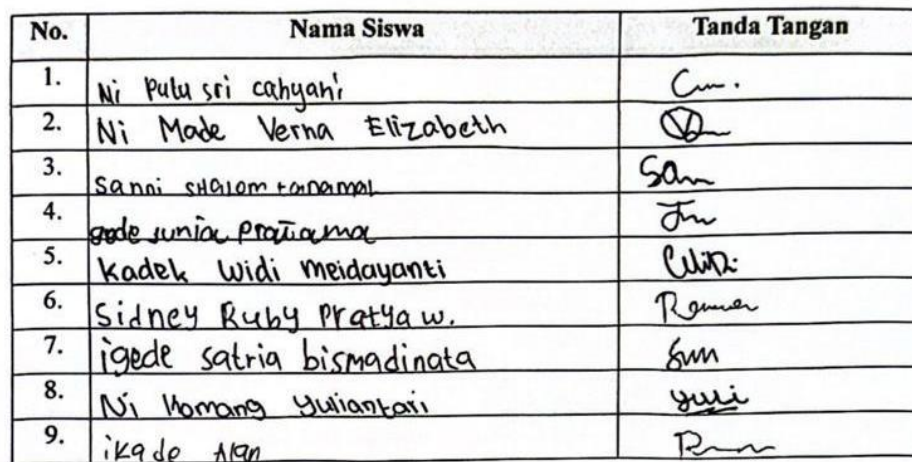 No. Nama Siswa Tanda Tangan
1. Ni Putu sri cahyani
2. Ni Made Verna Elizabeth
3. Sanni SHalom tanamal San
4. gede junia
5. Kadek Widi Meidayanti
6. Sidney Ruby Pratya w.
7. igede satria bismadinata
8. Ni Komang Yuliantari yuli
9. ikade Alan